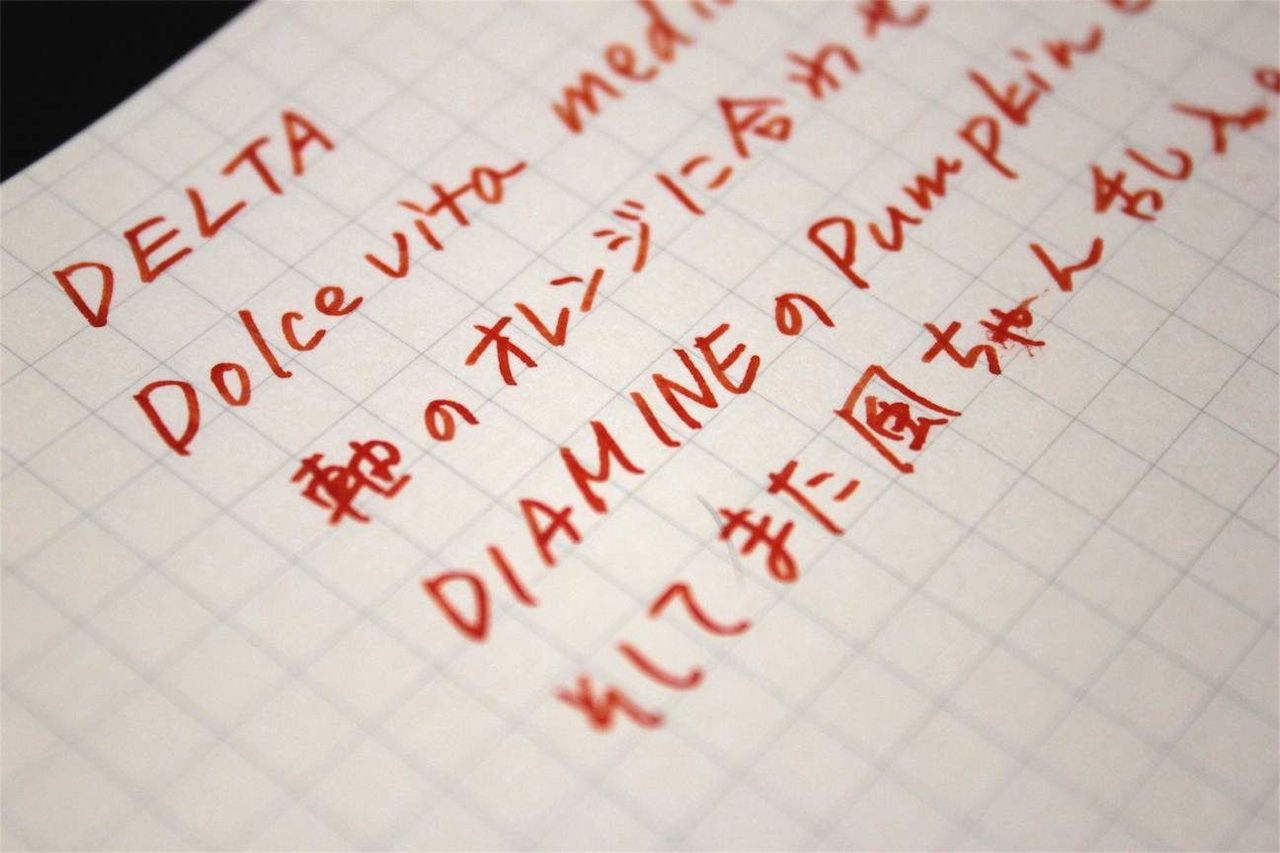 DELTA
Dolce vita medi
軸のオレンジに合わせ
DIAMINEのPumpkin
そして また風ちゃんおし